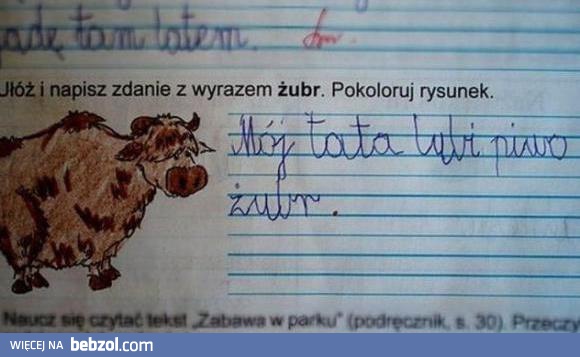 jadę tam latem.
Ułóż i napisz zdanie z wyrazem żubr. Pokoloruj rysunek.
Mój tata lubi piwo
żubr.
Naucz się czytać tekst „Zabawa w parku" (podręcznik, s. 30). Przeczy
WIĘCEJ NA bebzol.com